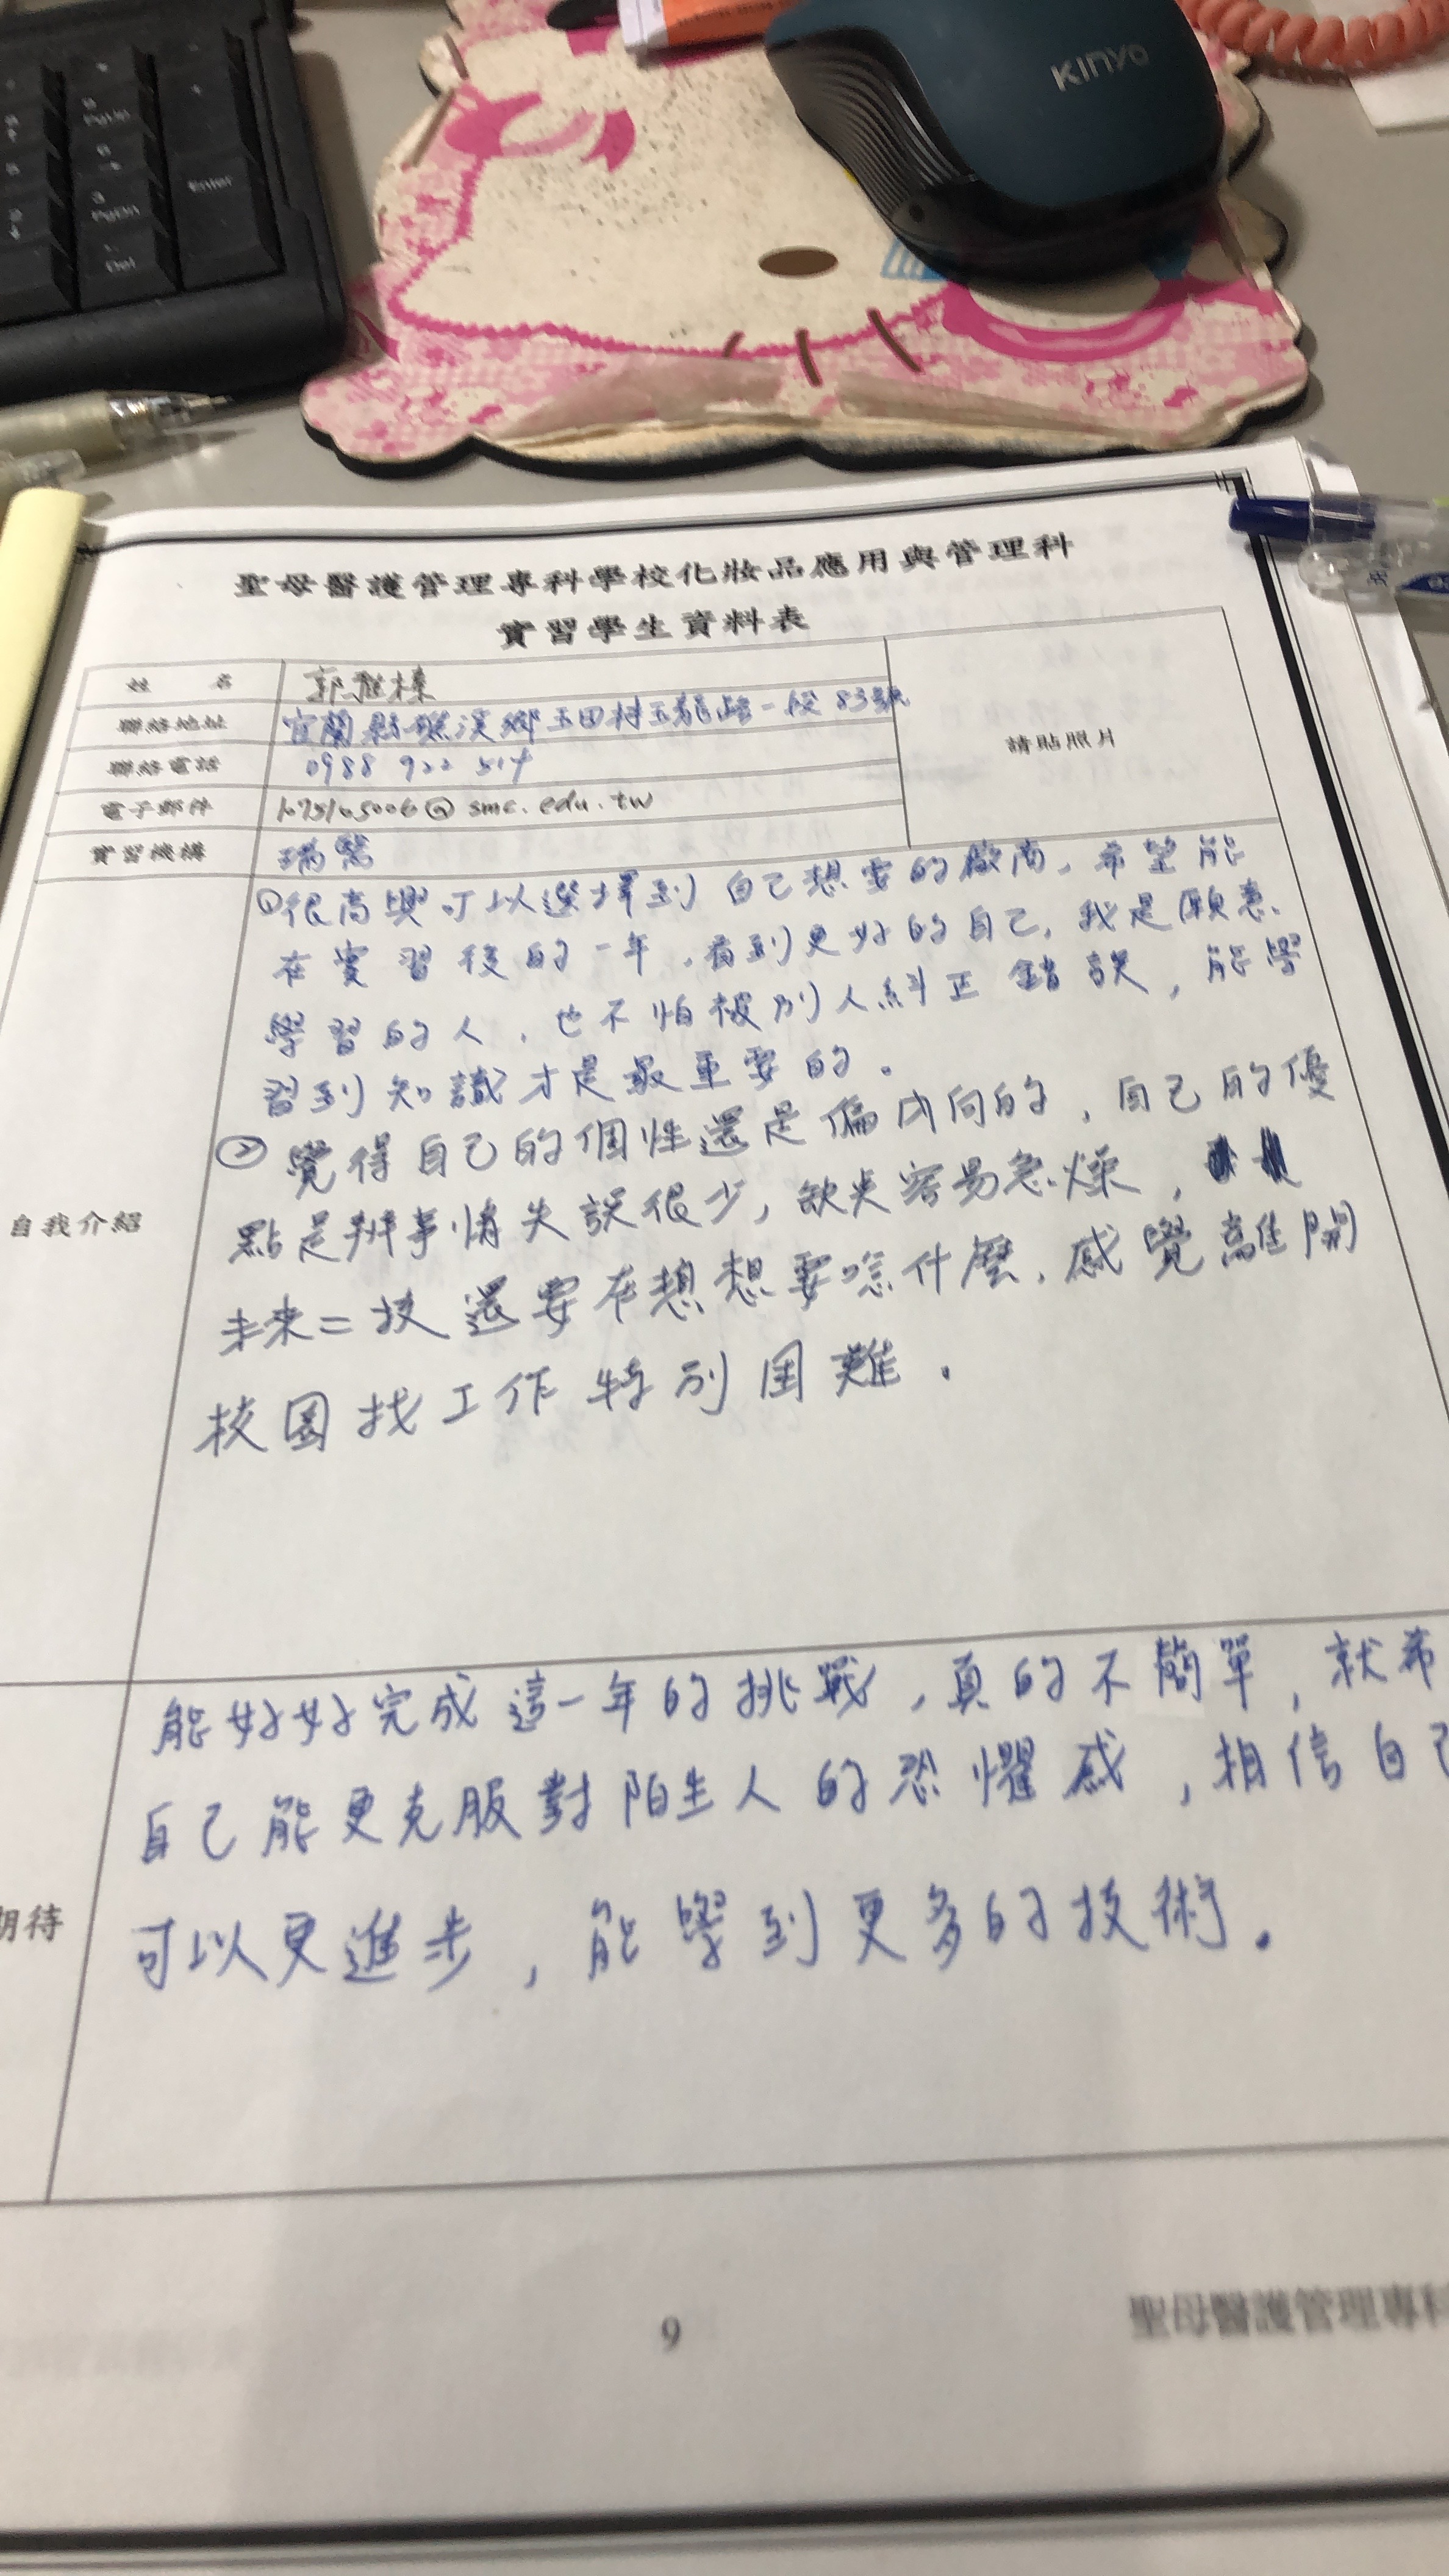 KINYO
PgUp
3
PgDn
Enter
Del
聖母醫護管理專科學校化妝品應用與管理科
實習學生資料表
姓 名
聯絡地址 宜蘭縣礁溪鄉玉田村玉龍路一段83號
請貼照片
聯絡電話 0988 922 514
電子郵件 @smc.edu.tw
實習機構 瑞醫
自我介紹
①很高興可以選擇到自己想要的廠商,希望能
在實習後的一年,看到更好的自己,我是願意
學習的人,也不怕被別人糾正錯誤,能學
習到知識才是最重要的。
② 覺得自己的個性還是偏內向的,自己的優
點是辨事情失誤很少,缺失容易急燥,
未來二技還要在想想要唸什麼,感覺離開
校園找工作特別困難。
期待
能好好完成這一年的挑戰,真的不簡單,就希
自己能更克服對陌生人的恐懼感,相信自己
可以更進步,能學到更多的技術。
9
聖母醫護管理專科